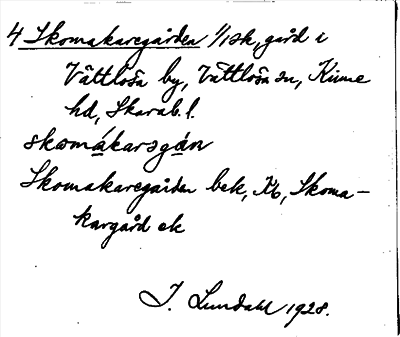 4 Skomakaregården 1/1 sk, gård i
Vättlösa by, Vättlösa sn, Kinne
hd, Skarab. l.
skomákarsgán
Skomakaregården bek, Kb, Skoma-
kargård ek
I. Lundahl 1928.